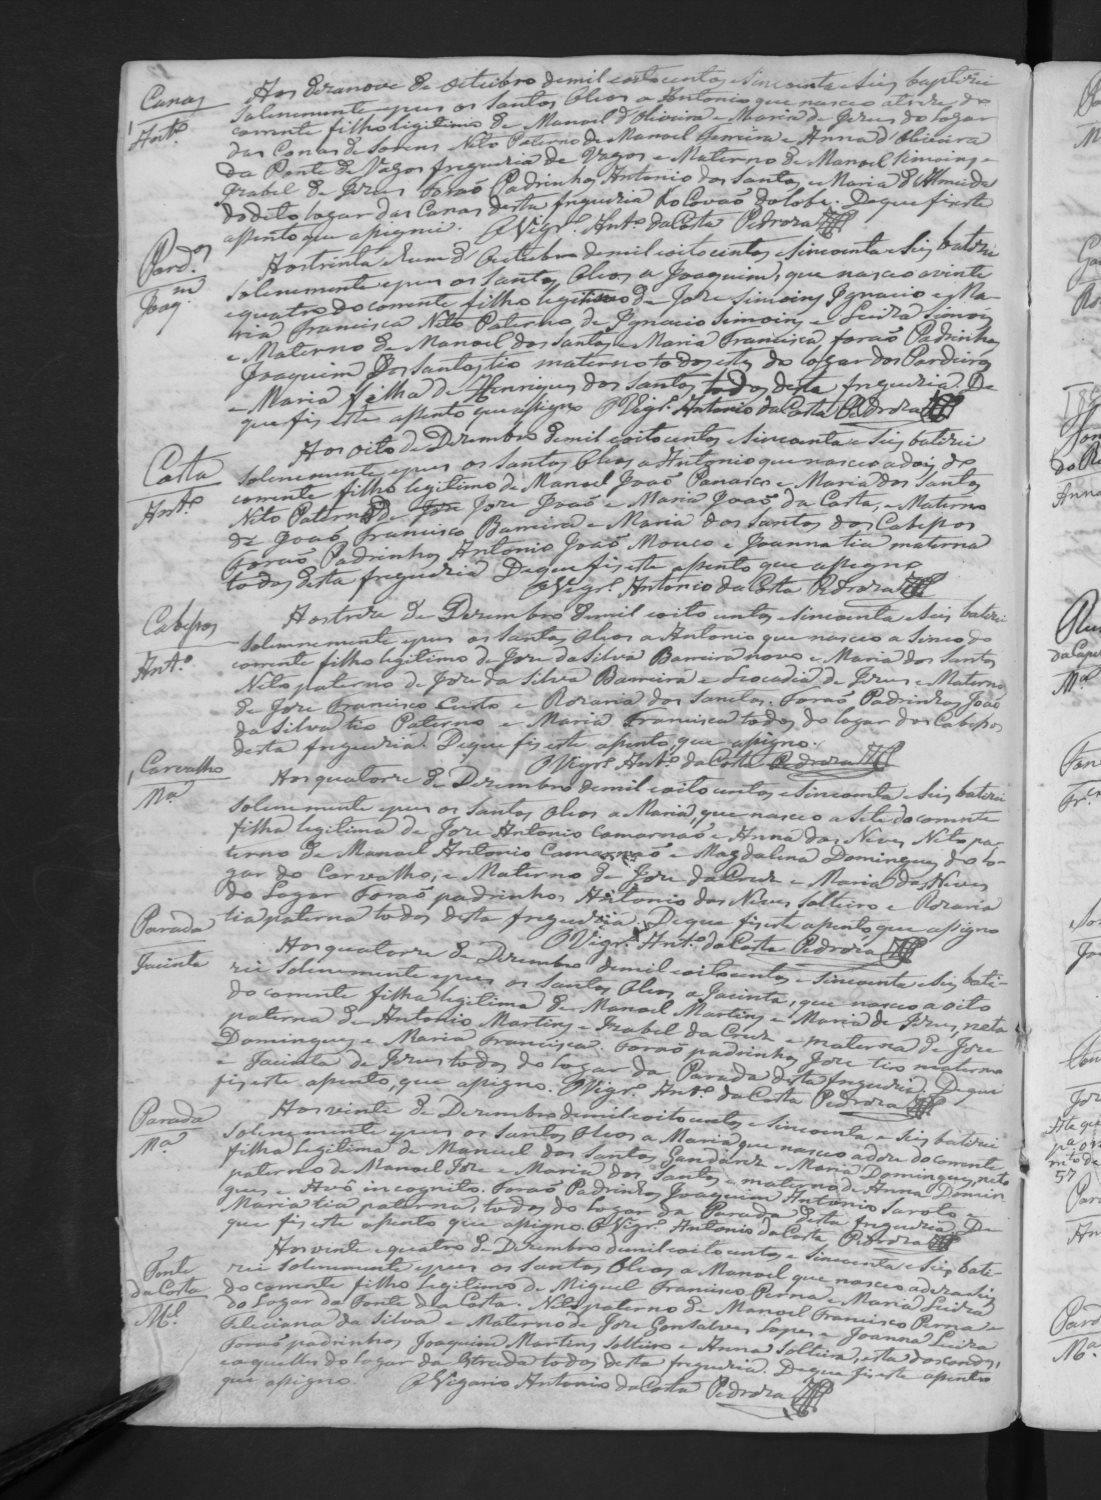 Canas
Ant.º
Aos dezanove de Outubro de mil oito centos e sincoenta e Seis baptizei
Solenemente e pus os Santos Oleos a Antonio que nasceo a treze do
corrente filho legitimo de Manoel d'Oliveira e Maria de Jezus do lugar
das Canas de Neto Paterno de Manoel Ferreira e Anna d'Oliveira
da Ponte de Vagos freguezia de Vagos e Materno de Manoel Simoins e
Izabel de Jezus Forão Padrinhos Antonio dos Santos e Maria d'Almeida
do dito lugar das Canas desta freguezia do Covão do lobo. De que fis este
assento que assignei. O Vigr.º Ant.º da Costa Pedroza
Pard.os
Joaq.m
Aos trinta e hum d'Outubro de mil oito centos e sincoenta e Seis batizei
solenemente e pus os Santos Oleos a Joaquim, que nasceo a vinte
e quatro do corrente filho legitimo de Jose Simoins Ignacio e Ma-
ria Francisca Neto Paterno de Ignacio Simoins e Luiza Simois
e Materno de Manoel dos Santos e Maria Francisca, forão Padrinhos
Joaquim dos Santos tio materno todos estes do lugar dos Pardeiros
e Maria filha de Henriques dos Santos todos desta freguezia. De
que fis este assento que assigno O Vigr.º Antonio da Costa Pedroza
Costa
Ant.º
Aos oito de Dezembro de mil e oito centos e sincoenta e Seis batizei
solenemente e pus os Santos Oleos a Antonio que nasceo a dois do
corrente filho legitimo de Manoel João Panasco e Maria dos Santos
Neto Paterno de Jose João e Maria João da Costa, e Materno
de João Francisco Barreira e Maria dos Santos dos Cabeços
Forão Padrinhos Antonio João Mouco e Joanna tia materna
todos desta freguezia De que fis este assento que assigno
O Vigr.º Antonio da Costa Pedroza
Cabeços
Ant.º
Aos treze de Dezembro de mil e oito centos e sincoenta e Seis batizei
solenemente e pus os Santos Oleos a Antonio que nasceo a sinco do
corrente filho legitimo de Jose da Silva Barreira novo e Maria dos Santos
Neto paterno de Jose da Silva Barreira e Leocadia de Jezus e Materno
de Jose Francisco Curto e Rozaria dos Santos. Forão Padrinhos João
da Silva tio Paterno e Maria Francisca todos do lugar dos Cabeços
desta freguezia. De que fis este assento, que assigno.
O Vigr.º Ant.º da Costa Pedroza
Carvalho
M.ª
Aos quatorze de Dezembro de mil e oito centos e sincoenta e Seis batizei
solenemente e pus os Santos Oleos a Maria, que nasceo a sete do corrente
filha legitima de Jose Antonio Camarnão e Anna das Neves Neta pa-
terno de Manoel Antonio Camarnão e Magdalena Domingues do lu-
gar do Carvalho, e Materno de Jose da Cruz e Maria das Neves
do Lugar Forão padrinhos Antonio das Neves solteiro e Rozaria
tia paterna todos desta freguezia. De que fis este assento que assigno
O Vigr.º Ant.º da Costa Pedroza
Parada
Jacinta
Aos quatorze de Dezembro de mil e oito centos e sincoenta e Seis bati-
zei Solenemente e pus os Santos Oleos a Jacinta, que nasceo a oito
do corrente filha legitima de Manoel Martins e Maria de Jezus, neta
paterna de Antonio Martins e Izabel da Cruz e materna de Jose
Domingues e Maria Francisca. Forão padrinhos Jose tio materno
e Jacinta de Jezus todos do lugar da Parada desta freguezia. De que
fis este assento, que assigno. O Vigr.º Ant.º da Costa Pedroza
Parada
M.ª
Aos vinte de Dezembro de mil e oito centos e sincoenta e Seis batizei
solenemente e pus os Santos Oleos a Maria que nasceo a doze do corrente
filha legitima de Manuel dos Santos e Maria Domingues, neto
paterno de Manoel Jose e Maria dos Santos e materno de Anna Domin-
gues e Avô incognito Forão Padrinhos Joaquim Antonio Saroto e
Maria tia paterna, todos do lugar da Parada desta freguezia De
que fis este assento que assigno. O Vigr.º Antonio da Costa Pedroza
Fonte
da Costa
M.el
Aos vinte e quatro de Dezembro de mil e oito centos e sincoenta e Seis bati-
zei Solenemente e pus os Santos Oleos a Manoel que nasceo a dezaseis
do corrente filho legitimo de Miguel Francisco Perna e Maria Luiza
do Lugar da Fonte da Costa. Neto paterno de Manoel Francisco Perna e
Feliciana da Silva e Materno de Jose Gonsalves Lopes e Joanna Luiza
Forão padrinhos Joaquim Martins Solteiro e Anna Solteira, esta
e aquelles do lugar da Estrada todos desta freguezia. De que fis este assento
que assigno. O Vigario Antonio da Costa Pedroza